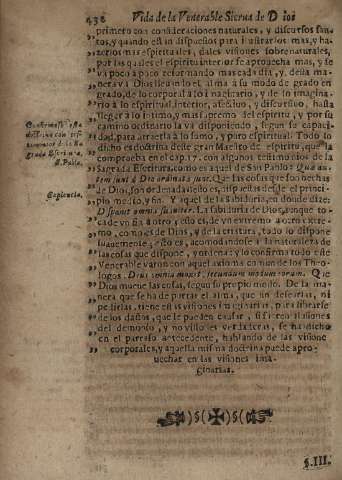 438 Vida de la Venerable Sierva de Dios
primero con consideraciones naturales, y discursos san-
tos, y quando està dispuesto para ilustrarlos mas, y ha-
zerlos mas espirituales, dales visiones sobrenaturales,
por las quales el espiritu interior se aprovecha mas, y se
và poco à poco reformando mas cada dia, y desta ma-
nera và Dios llevando el alma à su modo de grado en
grado, de lo corporal à lo imaginario, y de lo imagina-
rio à lo espiritual, interior, afectivo, y discursivo, hasta
llegar à lo intimo, y mas supremo del espiritu, y por su
camino ordinario la và disponiendo, segun su capaci-
dad, para traerla à lo sumo, y puro espiritual. Todo lo
dicho es doctrina deste gran Maestro de espiritu, que la
comprueba en el cap. 17. con algunos testimonios de la
Sagrada Escritura, como es aquel de San Pablo: Quæ au-
tem sunt à Deo ordinata sunt. Que las cosas que son hechas
de Dios, son ordenadas; esto es, dispuestas desde el princi-
pio medio, y fin. Y aquel de la Sabiduria, en donde dize:
Disponit omnia suaviter. La Sabiduria de Dios, aunque to-
ca de un fin à otro; esto es, de un extremo à otro extre-
mo, como es de Dios, y de la criatura, todo lo dispone
suavemente; esto es, acomodandose à la naturaleza de
las cosas que dispone, y ordena; y lo confirmò todo este
Venerable varon con aquel axioma comun de los Theo-
logos: Deus omnia movet, secundum modum eorum. Que
Dios mueve las cosas, segun su propio modo. De la ma-
nera que se ha de portar el alma, que sin desearlas, ni
pedirlas, tiene estas visiones imaginarias, para librarse
de los daños, que le pueden causar, si fueren ilusiones
del demonio, y no visiones verdaderas, se ha dicho
en el parrafo antecedente, hablando de las visiones
corporales, y aquella misma doctrina puede apro-
vechar en las visiones ima-
ginarias.
S. Pablo.
Sapiencia.
§. III.